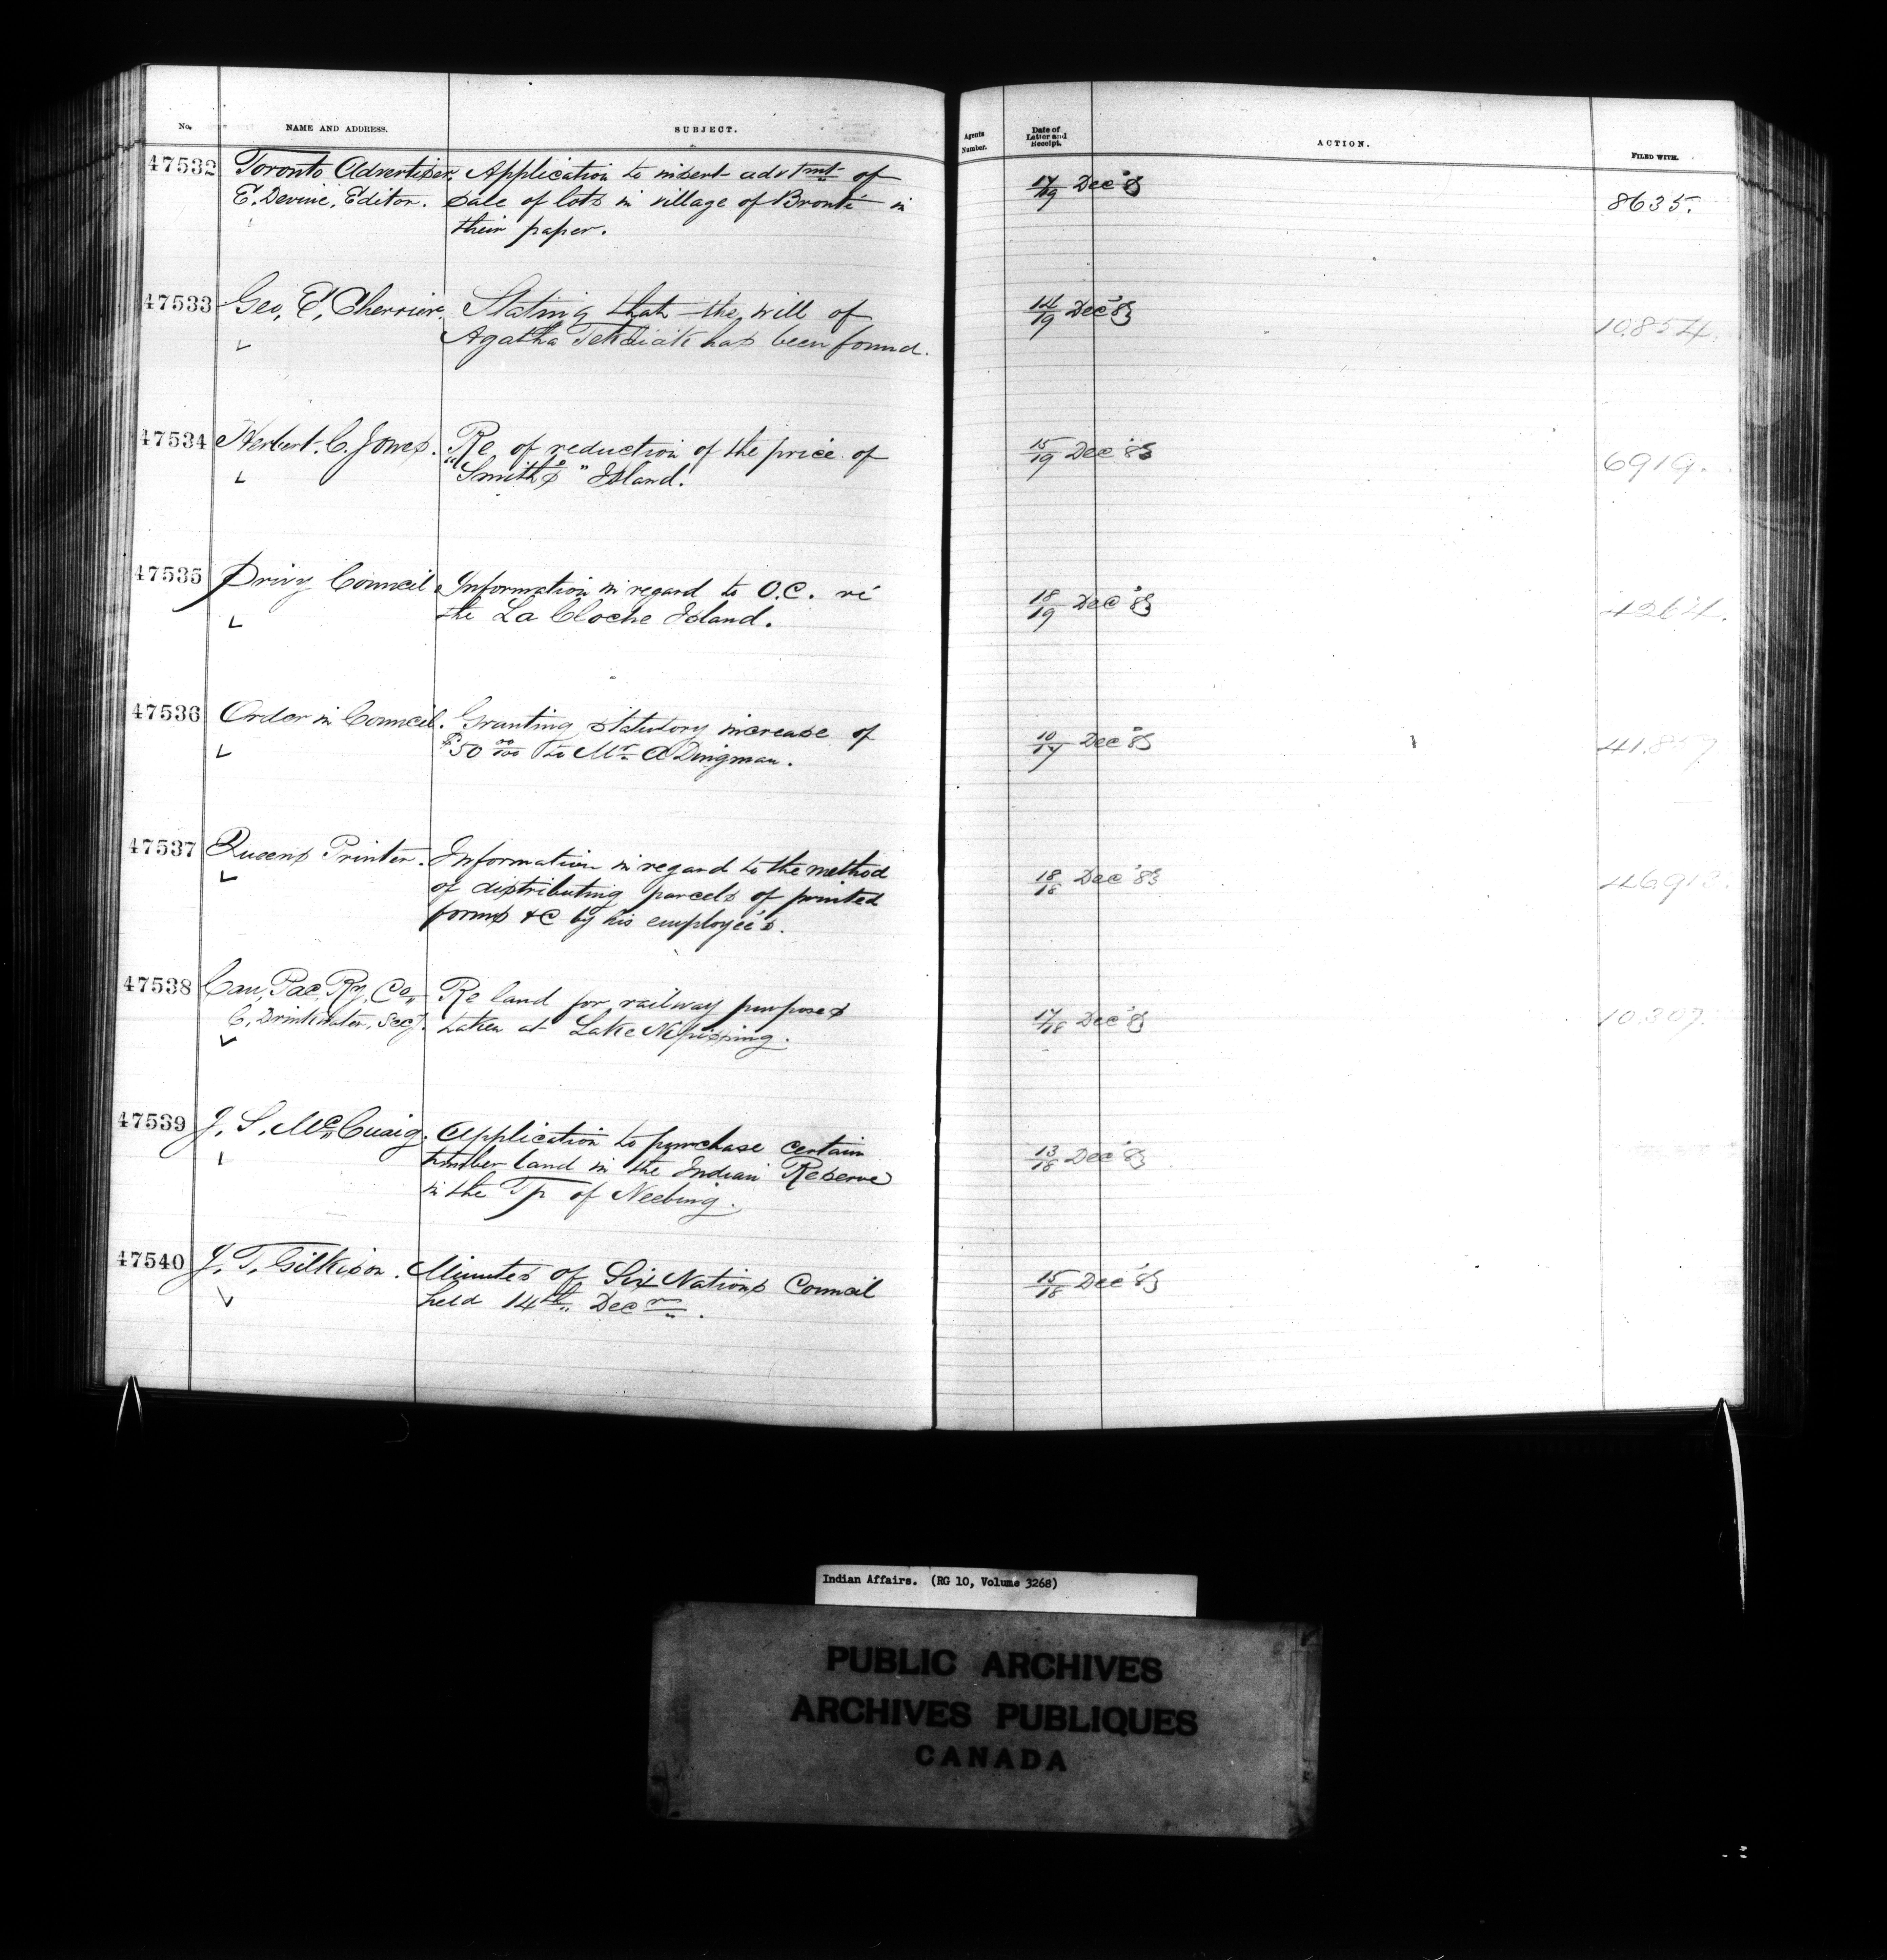 No. NAME AND ADDRESS. SUBJECT. Agents Number. Date of Letter and Receipt. ACTION. FILED WITH.
47532 Toronto Advertiser, Application to insert advtmt. of 17/19 Dec '83
E. Devine, Editor. sale of lots in village of Bronté in 8635.
their paper.
47533 Geo, E, Cherrier, Stating that the will of 14/19 Dec '83 10.854.
Agatha has been found.
47534 Herbert. C. Jones. Re of reduction of the price of 15/19 Dec '83 6919.
"Smith's" Island.
47535 Privy Council. Information in regard to O.C. ré 18/19 Dec '83 4264.
the La Cloche Island.
47536 Order in Council. Granting statutory increase of 10/17 Dec '83
$50 00/100 to Mr. A Dingman. 41.857
47537 Queens Printer. Information in regard to the method 18/18 Dec '83
of distributing parcels of printed
forms &C by his employeé's.
47538 Can, Pac, Ry, Co,, Re land for railway purposes 17/18 Dec '83 10.307.
C, Drinkwater, Secy. taken at Lake Nipissing.
47539 J, S, McCuaig. Application to purchase certain
timber land in the Indian Reserve 13/18 Dec '83
in the Tp of Neebing.
47540 J, T, Gilkison. Minutes of Six Nations Council 15/18 Dec '83
held 14th,, Decr.
Indian Affairs. (RG 10, Volume 3268)
PUBLIC ARCHIVES
ARCHIVES PUBLIQUES
CANADA